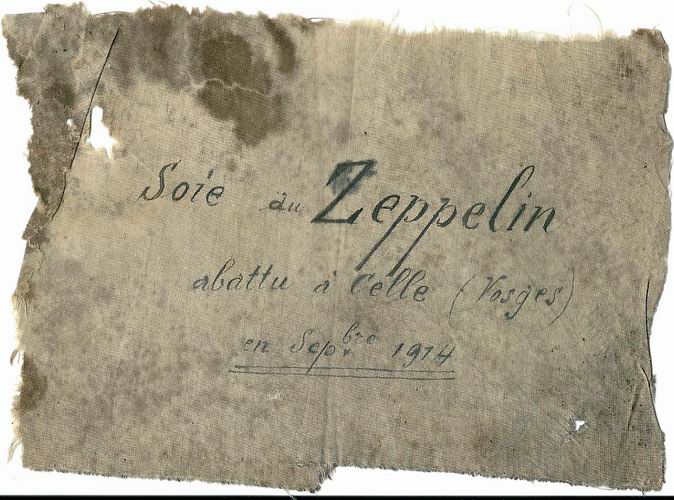 Soie du Zeppelin
abattu à Celle (Vosges)
en Sepbre 1914